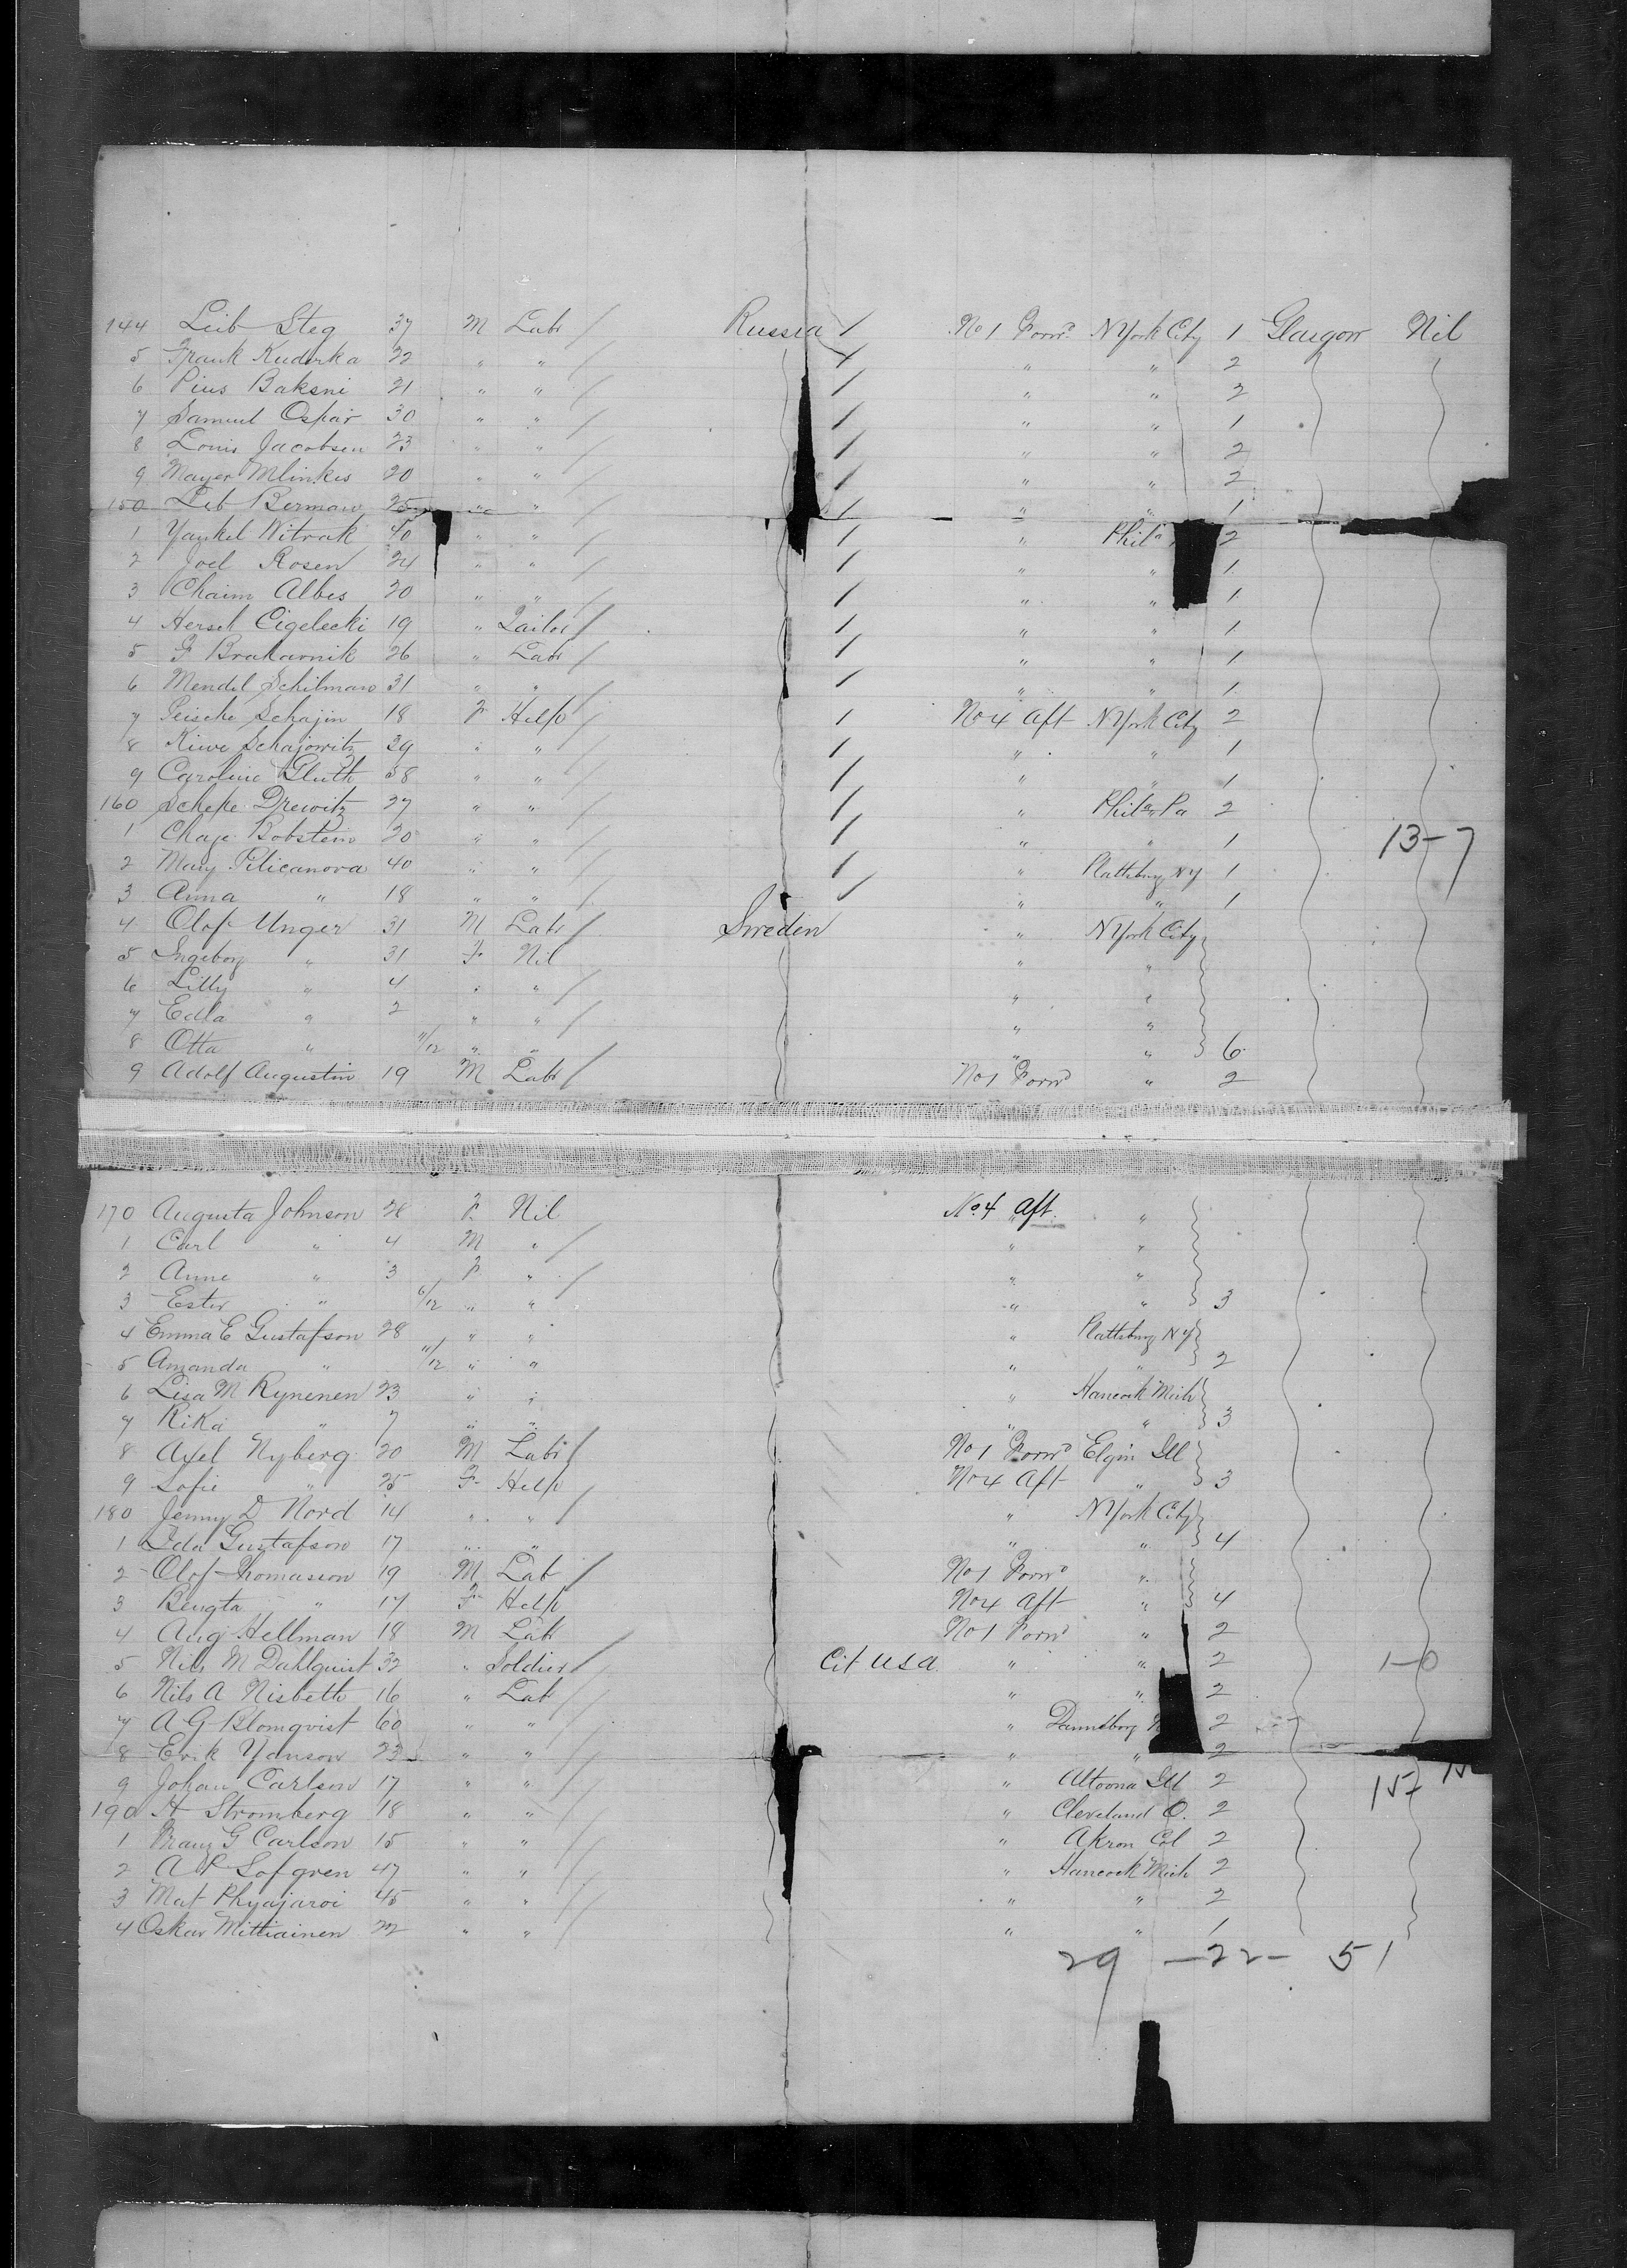 144 Leib Steg 37 M Labr / Russia / No 1 Forwd N York City 1 Glasgow Nil
5 Frank Kudirka 22 " " / / " " 2
6 Pius Baksni 21 " " / / " " 2
7 Samuel Ospar 30 " " / / " " 1
8 Louis Jacobsen 23 " " / / " " 2
9 Mayer Mlinkes 20 " " / / " " 2
150 Leb Berman 25 " " / / " " 1
1 Yankel Witrak 40 " " / / " Phila 2
2 Joel Rosen 24 " " / / " " 1
3 Chaim Albes 20 " " / / " " 1
4 Hersch Cigelecki 19 " Tailor / / " " 1
5 F Brakarnik 26 " Labr / / " " 1
6 Mendel Schilman 31 " " / / " " 1
7 Peische Schajin 18 F Help / / No 4 Aft N York City 2
8 Riwe Schajowitz 39 " " / / " " 1
9 Caroline Gluth 58 " " / / " " 1
160 Schepe Drewitz 27 " " / / " Phila Pa 2
1 Chaje Bobstein 20 " " / / " " 1 13-7
2 Mary Pilicanova 40 " " / / " Plattsburg NY 1
3 Anna " 18 " " / / " " 1
4 Olof Unger 31 M Labr / Sweden " N York City
5 Ingeborg " 31 F Nil " "
6 Lilly " 4 " " / " "
7 Edla " 2 " " / " "
8 Otta " 11/12 " " " " 6
9 Adolf Augustin 19 M Labr / No 1 Forwd " 2
170 Augusta Johnson 28 F Nil No. 4 Aft. "
1 Carl " 4 M " / " "
2 Anne " 3 F " / " "
3 Ester " 6/12 " " " " 3
4 Emma E Gustafson 28 " " " Plattsburg NY
5 Amanda " 11/12 " " " " 2
6 Lisa M Rynenen 23 " " " Hancock Mich
7 Rika " 7 " " " " 3
8 Axel Nyberg 20 M Labr / No 1 Forwd Elgin Ill
9 Sofie " 25 F Help No 4 Aft " 3
180 Jenny D Nord 14 " " / " N York City
1 Ida Gustafson 17 " " " " 4
2 Olof Thomasson 19 M Lab / No 1 Forwd "
3 Bengta " 17 F Help No 4 Aft " 4
4 Aug Hellman 18 M Lab No 1 Forwd " 2
5 Nils M Dahlquist 32 " Soldier / Cit USA " " 2 1-0
6 Nils A Nisbeth 16 " Lab / " " 2
7 A G Blomqvist 60 " " / " 2
8 Erik Yanson 23 " " / " " 2
9 Johan Carlson 17 " " / " Altoona Ill 2 15-7
190 H Stromberg 18 " " / " Cleveland O. 2
1 Franz G Carlson 15 " " / " Akron Col 2
2 A P Lofgren 47 " " / " Hancock Mich 2
3 Mat Phyajaroi 45 " " / " " 2
4 Oskar Mittiainen 22 " " / " " 1
29 - 22 - 51